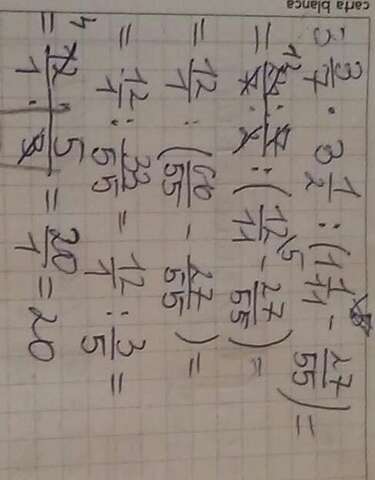 carta blanca
3 3/7 · 3 1/2 : (1 1/11 - 27/55) =
= 24/7 · 7/2 : (12/11 - 27/55) =
= 12/1 : (60/55 - 27/55) =
= 12/1 : 33/55 = 12/1 : 3/5 =
= 12/1 · 5/3 = 20/1 = 20